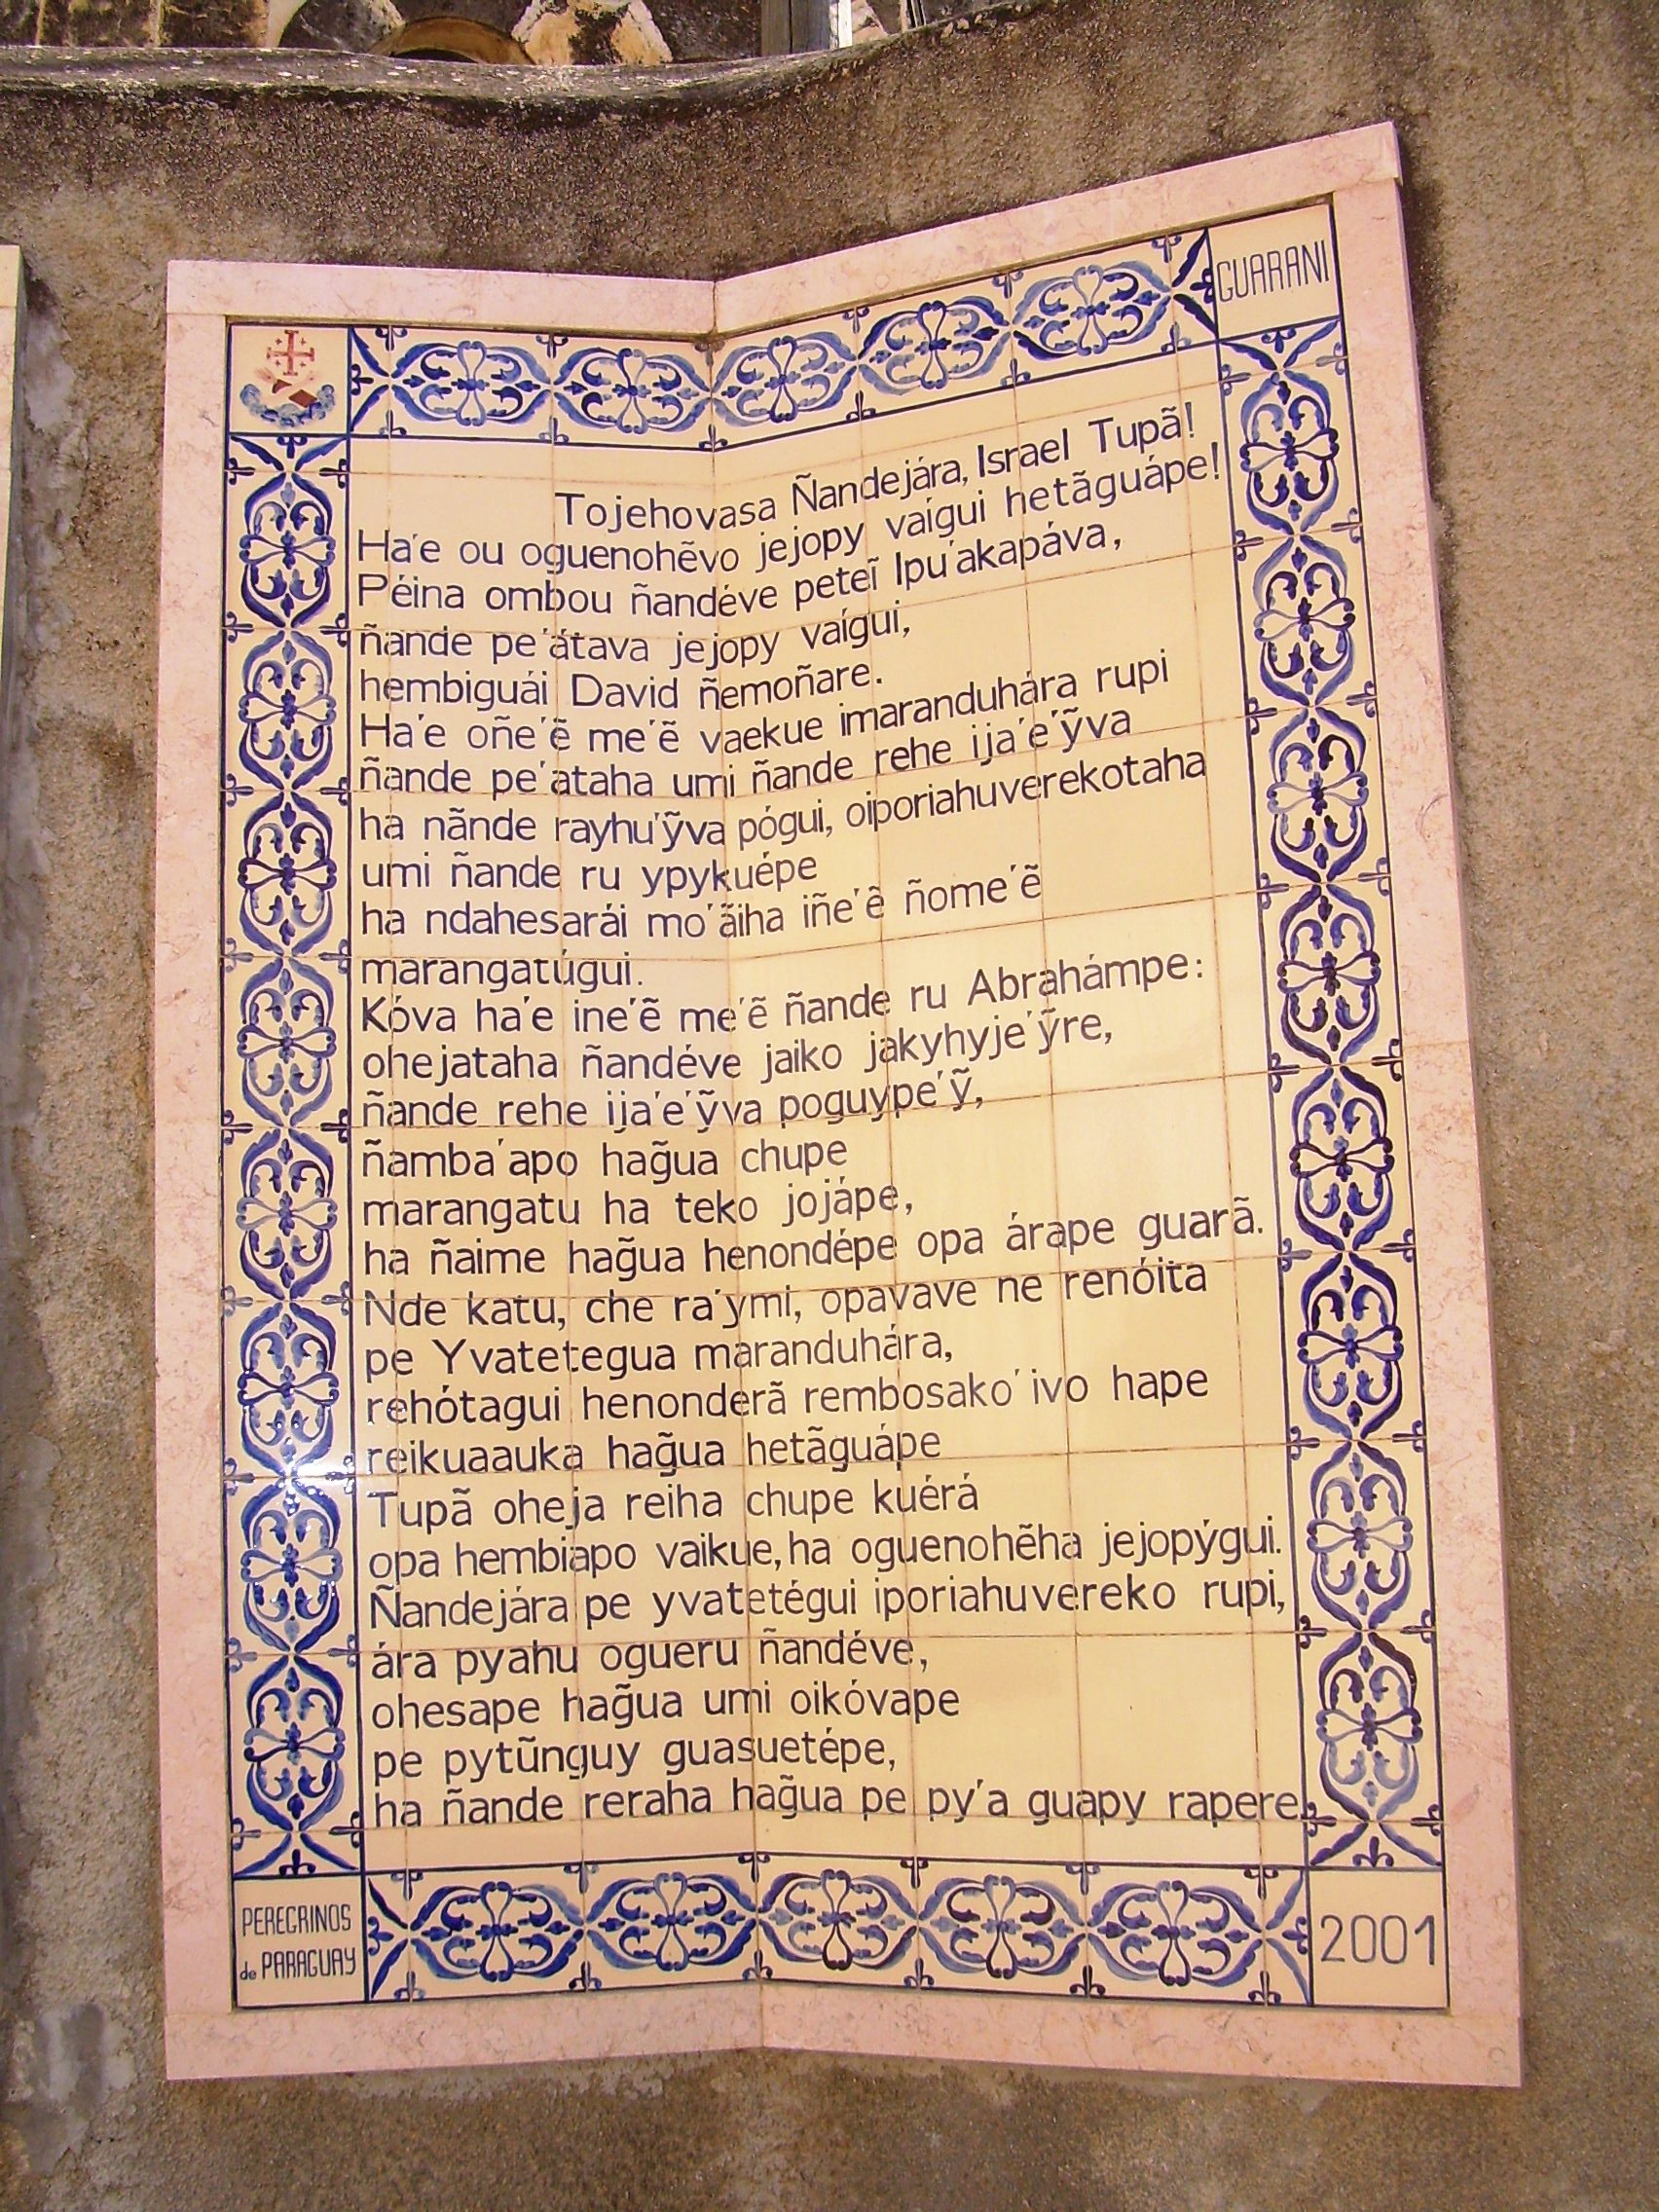 GUARANI
Tojehovasa Ñandejára, Israel Tupã!
Ha'e ou oguenohẽvo jejopy vaígui hetãguápe!
Péina ombou ñandéve peteĩ Ipu'akapáva,
ñande pe'átava jejopy vaígui,
hembiguái David ñemoñare.
Ha'e oñe'ẽ me'ẽ vaekue imaranduhára rupi
ñande pe'ataha umi ñande rehe ija'e'ỹva
ha nãnde rayhu'ỹva pógui, oiporiahuverekotaha
umi ñande ru ypykuépe
ha ndahesarái mo'ãiha iñe'ẽ ñome'ẽ
marangatúgui.
Kóva ha'e ine'ẽ me'ẽ ñande ru Abrahámpe:
ohejataha ñandéve jaiko jakyhyje'ỹre,
ñande rehe ija'e'ỹva poguype'ỹ,
ñamba'apo hag̃ua chupe
marangatu ha teko jojápe,
ha ñaime hag̃ua henondépe opa árape guarã.
Nde katu, che ra'ymi, opavave ne renóita
pe Yvatetegua maranduhára,
rehótagui henonderã rembosako'ivo hape
reikuaauka hag̃ua hetãguápe
Tupã oheja reiha chupe kuérá
opa hembiapo vaikue, ha oguenohẽha jejopýgui.
Ñandejára pe yvatetégui iporiahuvereko rupi,
ára pyahu ogueru ñandéve,
ohesape hag̃ua umi oikóvape
pe pytũnguy guasuetépe,
ha ñande reraha hag̃ua pe py'a guapy rapere.
PEREGRINOS
de PARAGUAY
2001